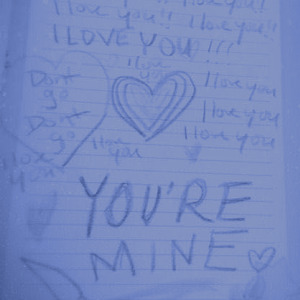 I love you!
I love you!! I love you!!
I LOVE YOU!!!
I love you
I love you
Don't go
I love you
Don't go
I love you
I love you
I love you
YOU'RE
MINE